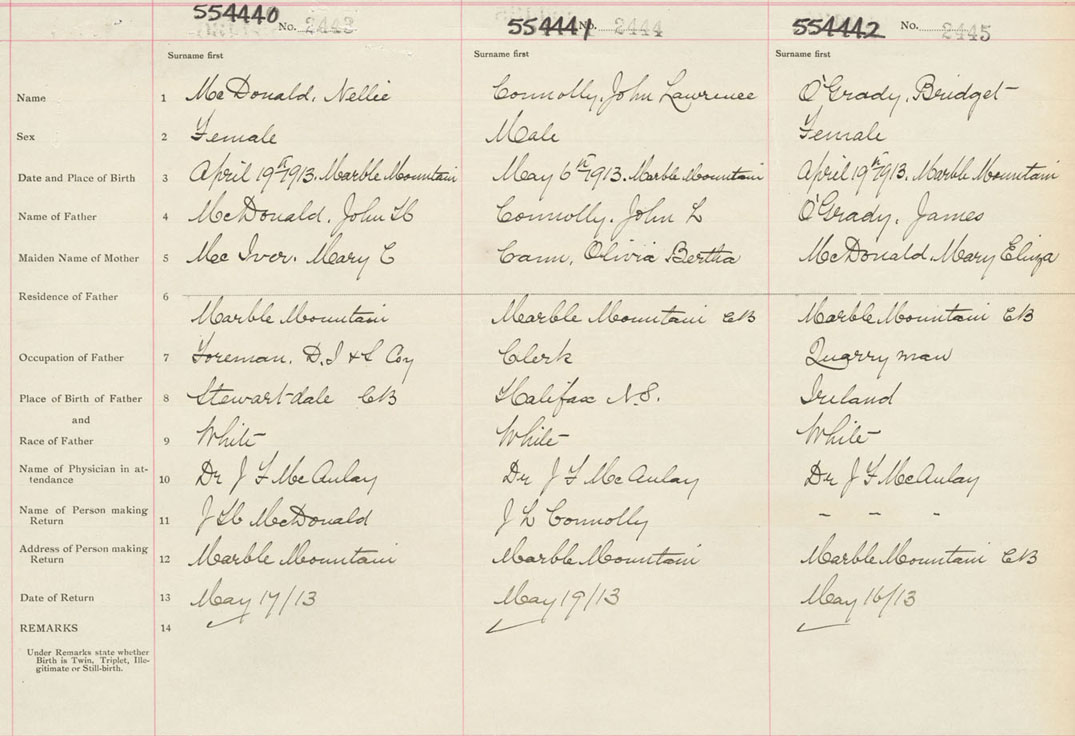 554440 No. 2443 554441 No. 2444 554442 No. 2445
Surname first Surname first Surname first
Name 1 McDonald, Nellie Connolly, John Lawrence O'Grady, Bridget
Sex 2 Female Male Female
Date and Place of Birth 3 April 19th 1913. Marble Mountain May 6th 1913. Marble Mountain April 19th 1913. Marble Mountain
Name of Father 4 McDonald, John H Connolly, John L O'Grady, James
Maiden Name of Mother 5 Mc Iver, Mary C Cann, Olivia Bertha McDonald, Mary Eliza
Residence of Father 6
Marble Mountain Marble Mountain CB Marble Mountain CB
Occupation of Father 7 Foreman, D.I & S Coy Clerk Quarry man
Place of Birth of Father 8 Stewart-dale CB Halifax N.S. Ireland
and
Race of Father 9 White White White
Name of Physician in at-
tendance 10 Dr J F McAulay Dr J F McAulay Dr J F McAulay
Name of Person making
Return 11 J H McDonald J L Connolly - - -
Address of Person making
Return 12 Marble Mountain Marble Mountain Marble Mountain CB
Date of Return 13 May 17/13 May 19/13 May 16/13
REMARKS 14
Under Remarks state whether
Birth is Twin, Triplet, Ille-
gitimate or Still-birth.